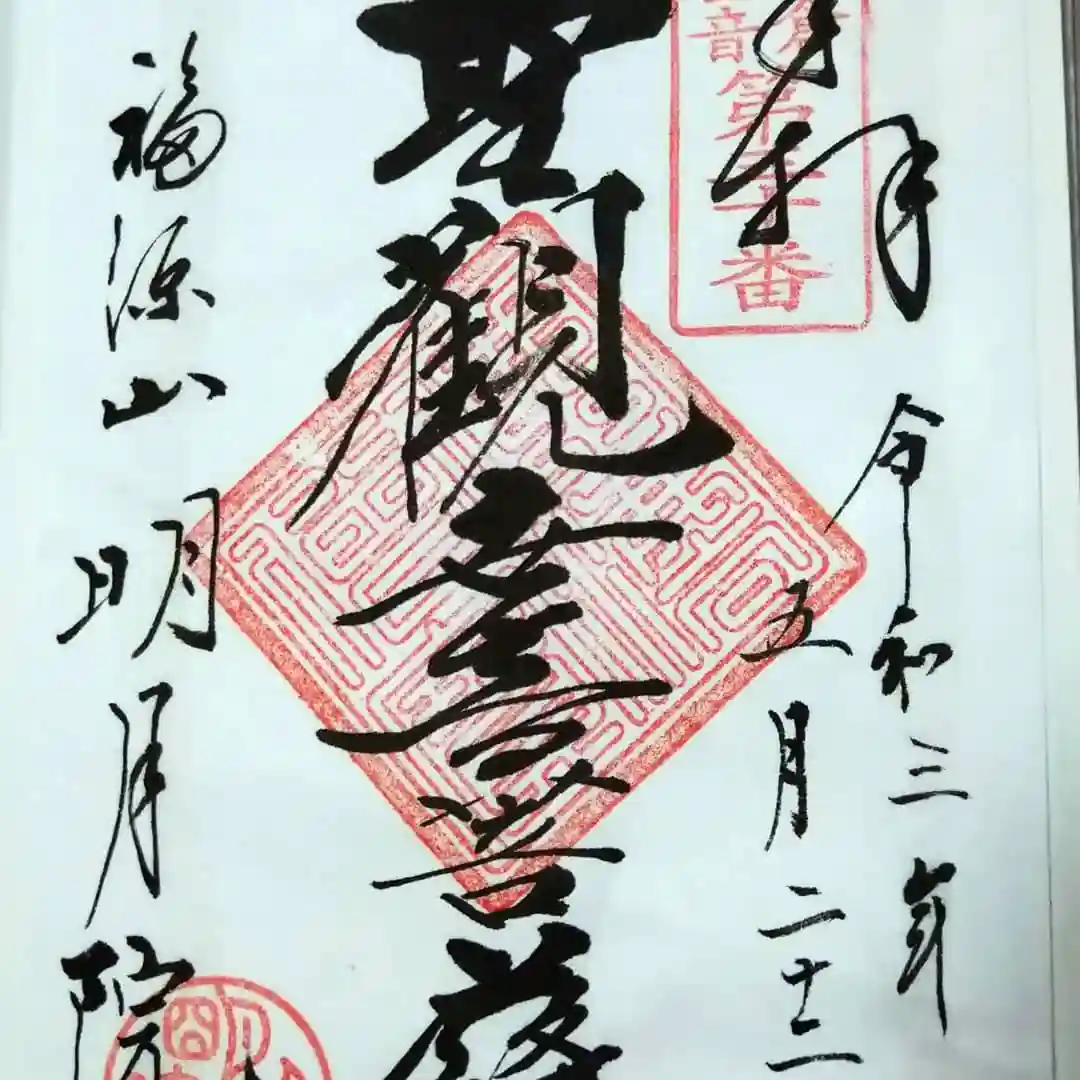 奉拝
令和三年
五月二十二
第三十番
聖觀音菩薩
福源山
明月院